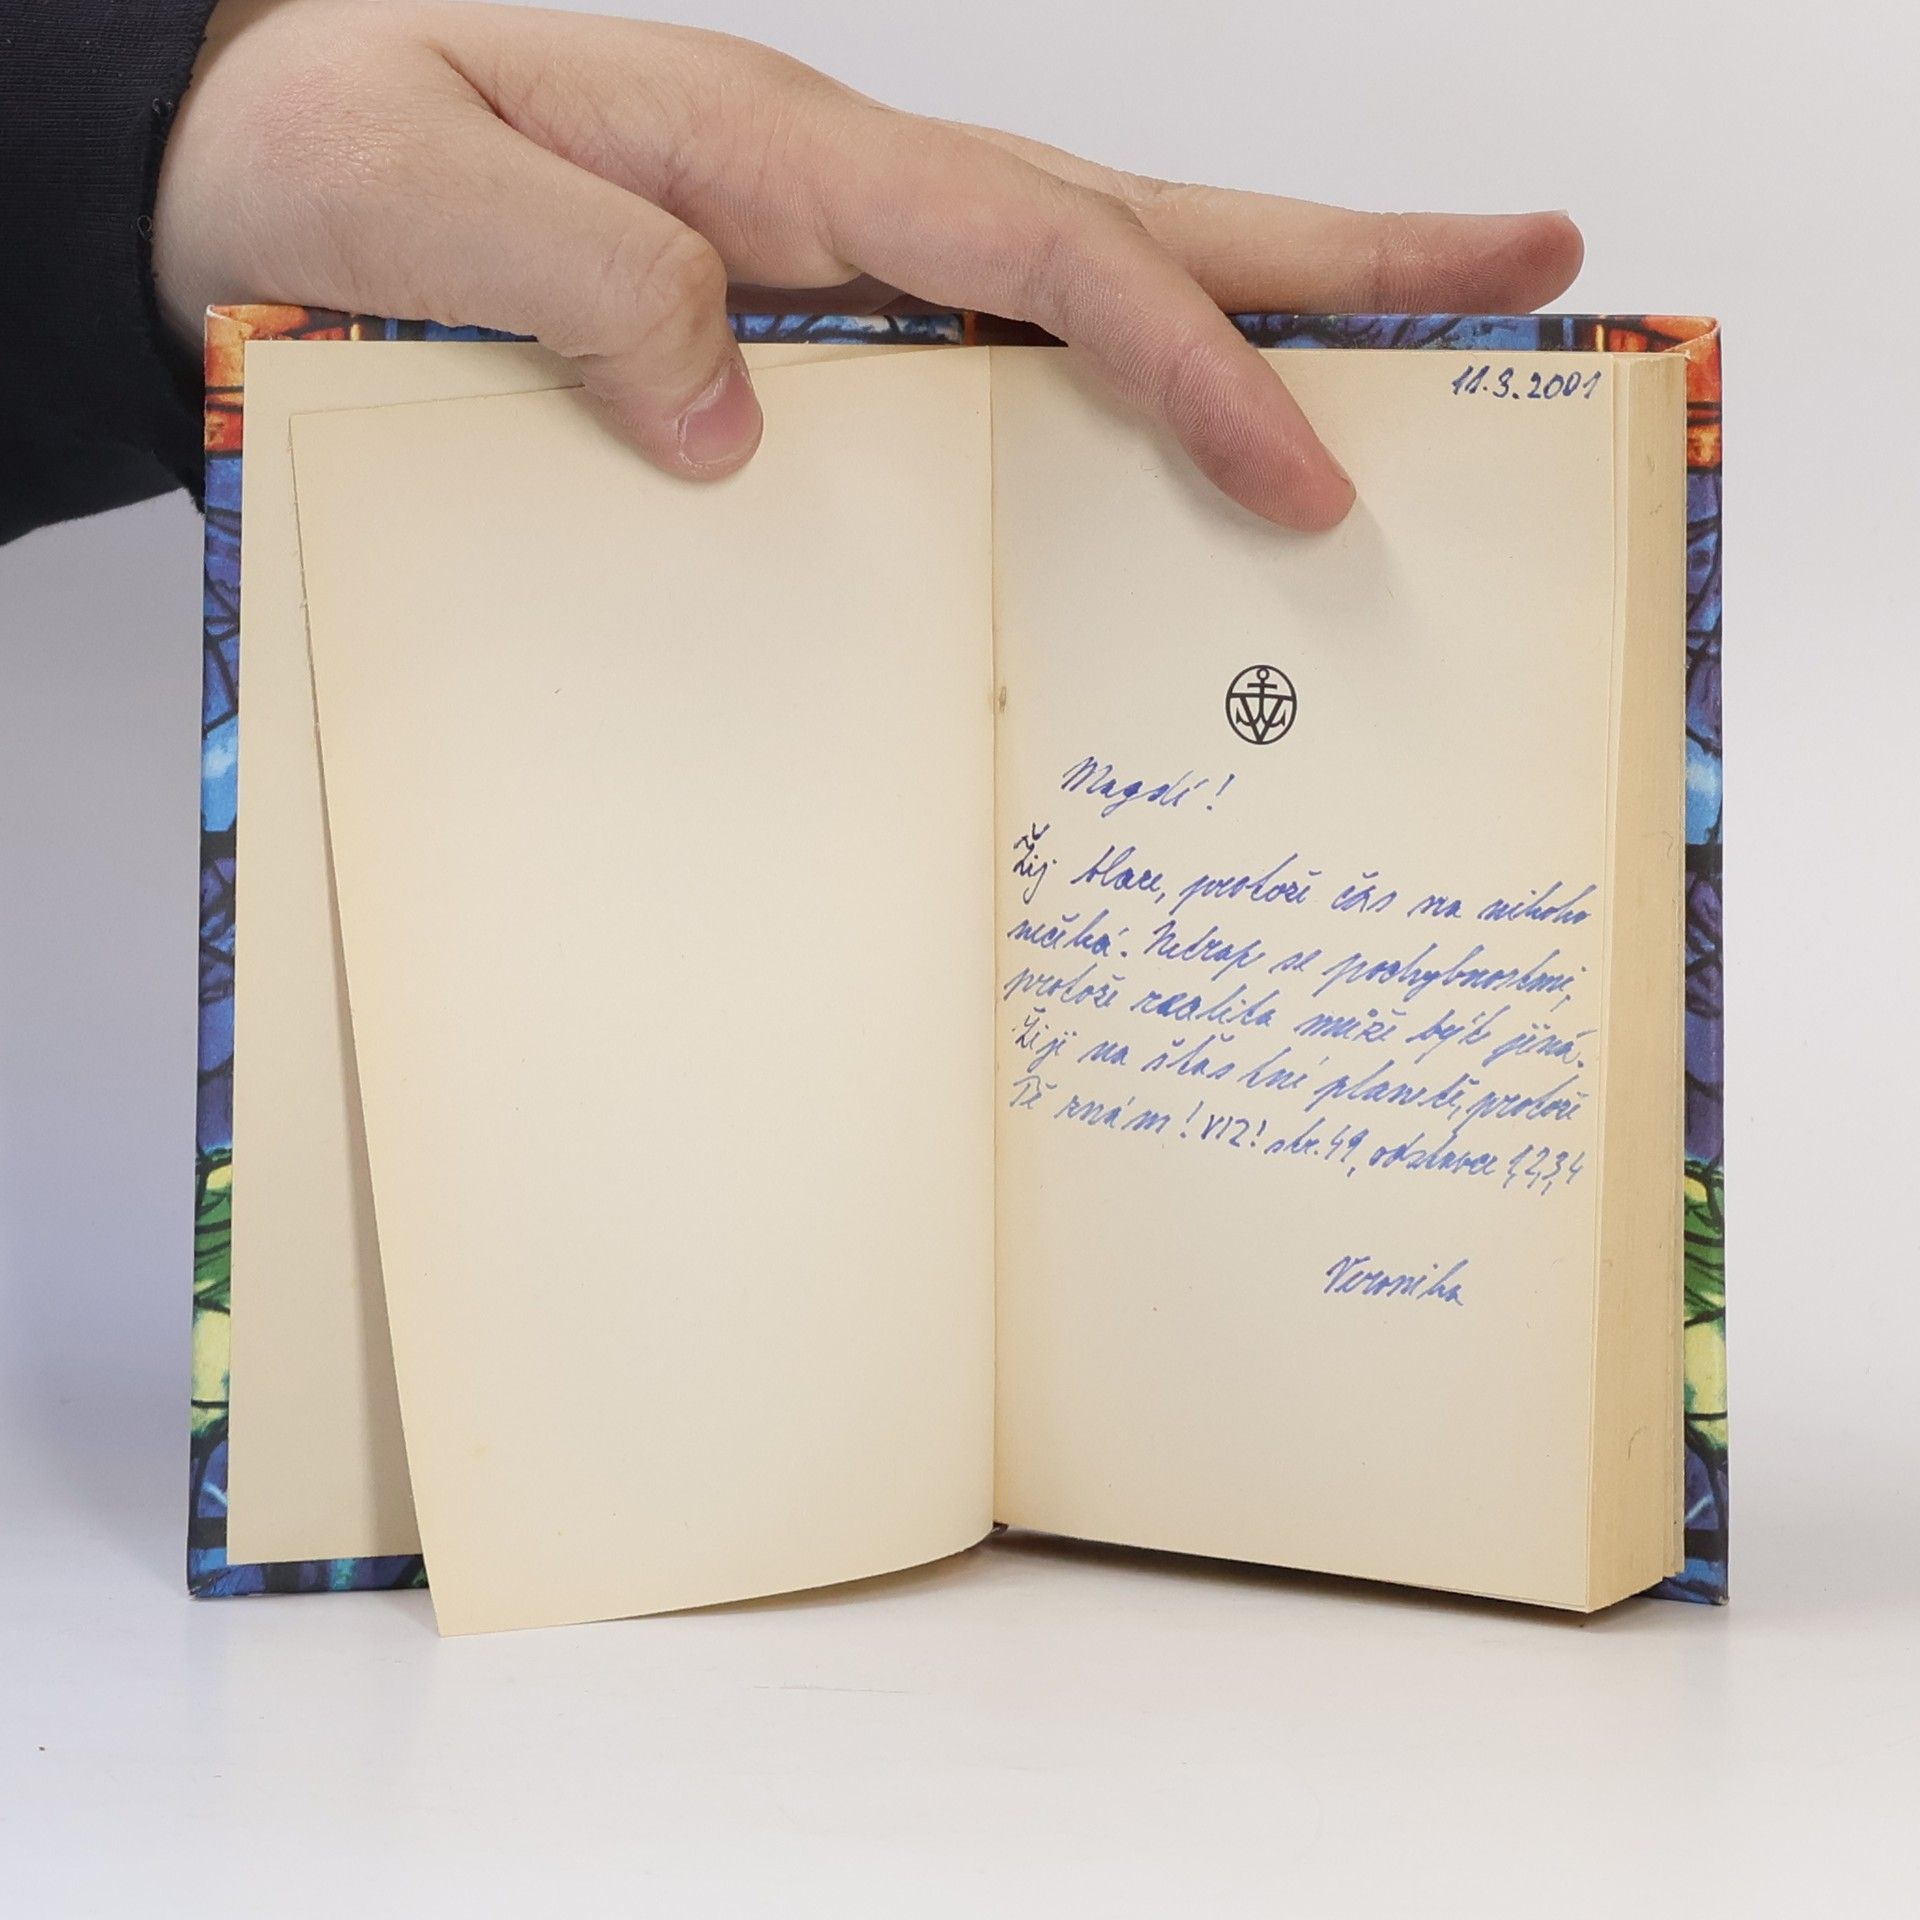 11.3.2001
Magdí!
Žij blaze, protože čas na nikoho
nečeká. Netrap se pochybnostmi,
protože realita může být jiná.
Žiji na šťastné planetě, protože
Tě znám! VIZ! str. 49, odstavce 1,2,3,4
Veronika